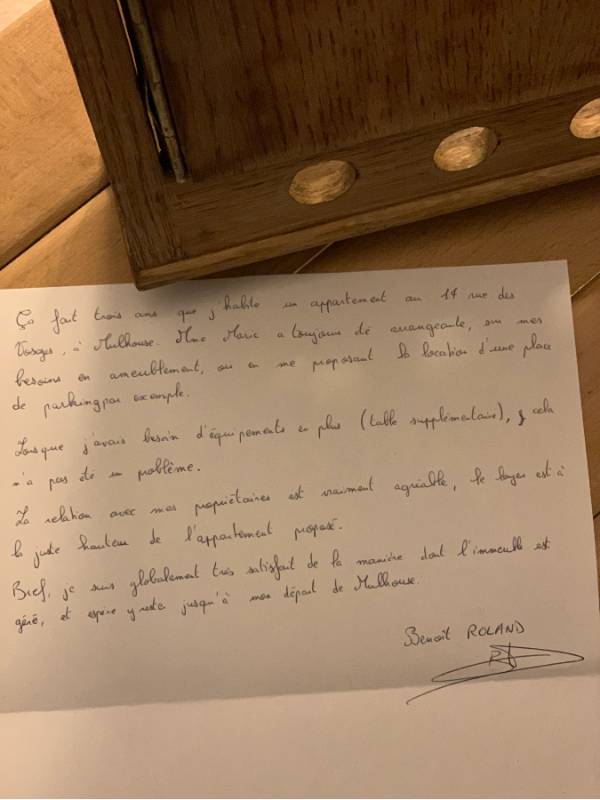 Ça fait trois ans que j'habite un appartement au 17 rue des
Vosges, à Mulhouse. Mme Marie a toujours été arrangeante, sur mes
besoins en ameublement, ou en me proposant la location d'une place
de parking par exemple.
Lorsque j'avais besoin d'équipements en plus (table supplémentaire), cela
n'a pas été un problème.
La relation avec mes propriétaires est vraiment agréable, le loyer est à
la juste hauteur de l'appartement proposé.
Bref, je suis globalement très satisfait de la manière dont l'immeuble est
géré, et espère y rester jusqu'à mon départ de Mulhouse.
Benoît ROLAND